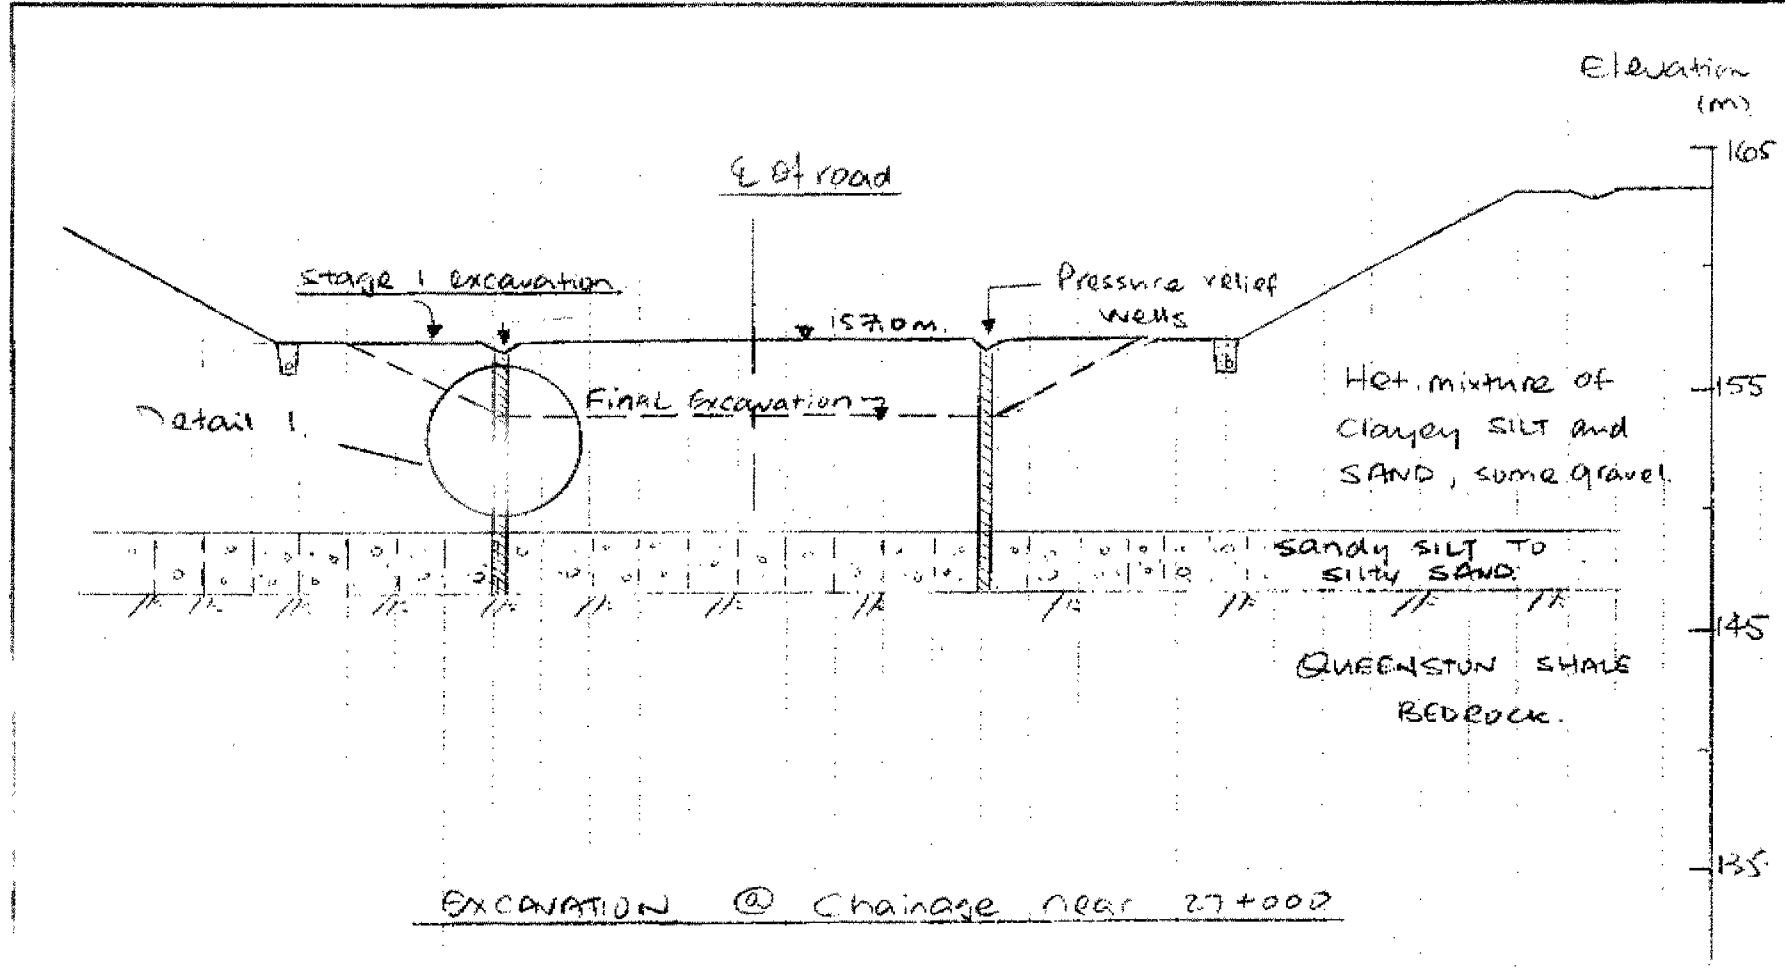 Elevation
(m)
165
℄ of road
Stage 1 excavation
Pressure relief
wells
157.0m.
Final Excavation
155
Het. mixture of
Clayey SILT and
SAND, some gravel.
Detail 1.
Sandy SILT TO
Silty SAND.
145
QUEENSTUN SHALE
BEDROCK.
135
EXCAVATION @ Chainage near 27+000